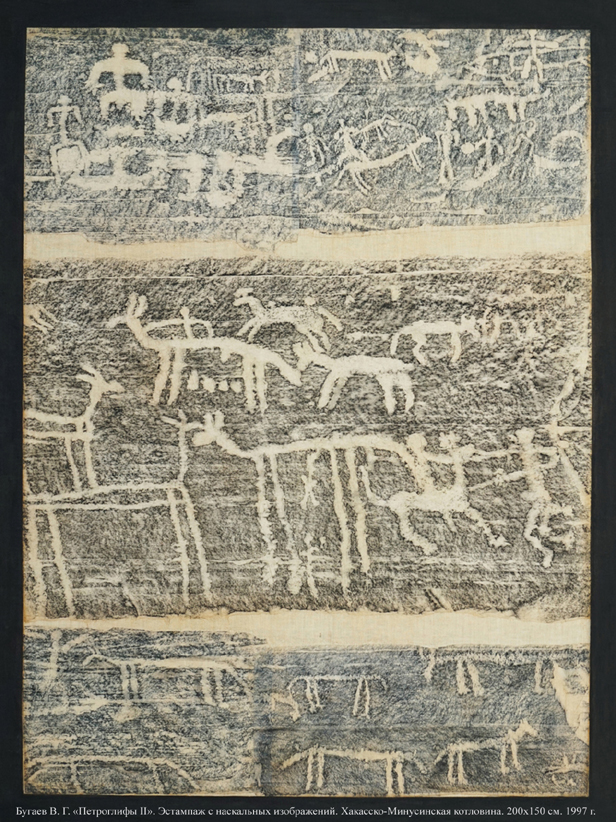 Бугаев В. Г. «Петроглифы II». Эстампаж с наскальных изображений. Хакасско-Минусинская котловина. 200х150 см. 1997 г.